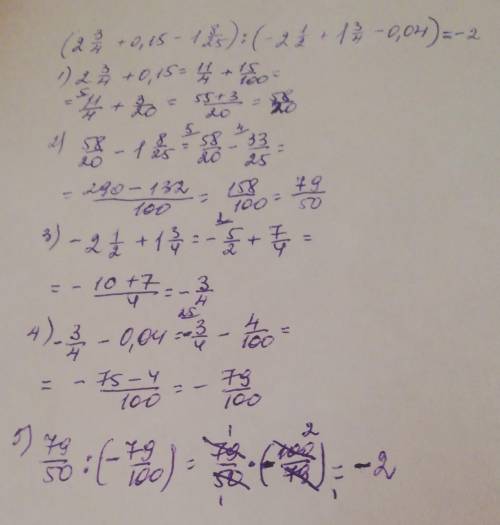 (2 3/4 + 0,15 - 1 8/25) : (-2 1/2 + 1 3/4 - 0,04) = -2
1) 2 3/4 + 0,15 = 11/4 + 15/100 =
= 5 11/4 + 3/20 = 55+3/20 = 58/20
2) 58/20 - 1 8/25 = 5 58/20 - 4 33/25 =
= 290-132/100 = 158/100 = 79/50
3) -2 1/2 + 1 3/4 = - 2 5/2 + 7/4 =
= - 10+7/4 = - 3/4
4) - 3/4 - 0,04 = - 25 3/4 - 4/100 =
= - 75-4/100 = - 79/100
5) 79/50 : (- 79/100) = 1 79/50 1 · (- 100 2/79 1) = -2